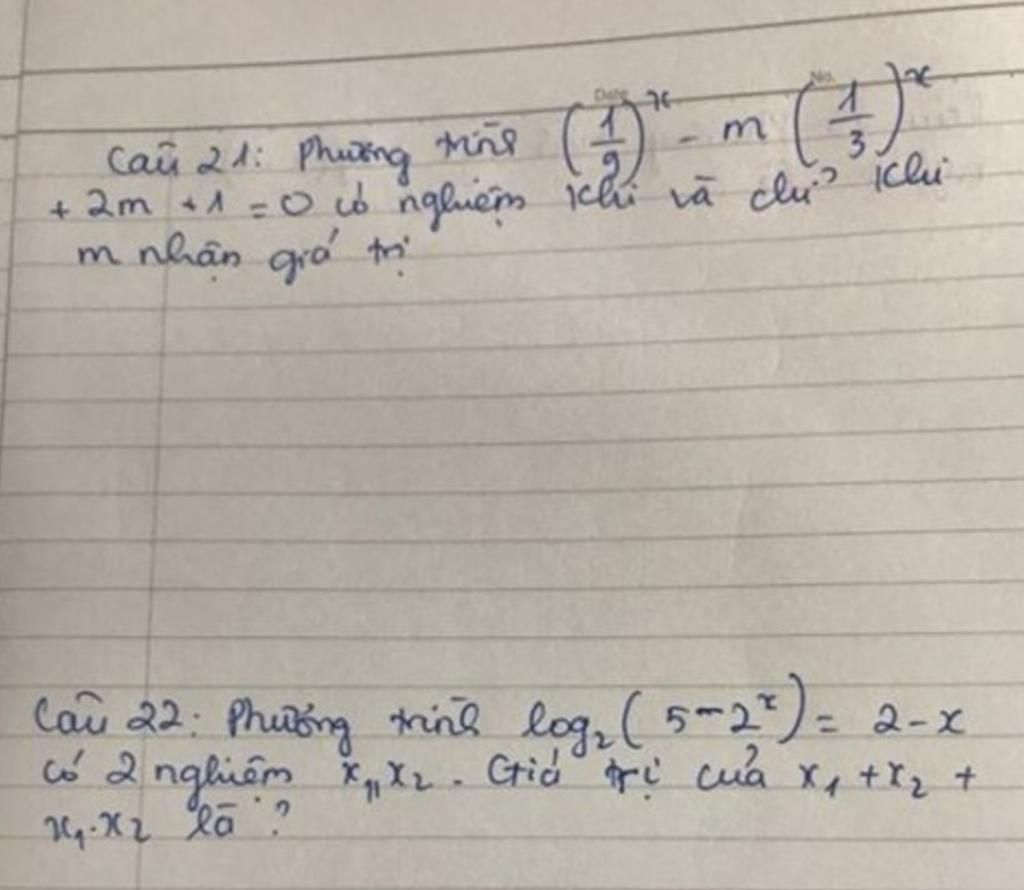 Câu 21: Phương trình (1/9)^x - m (1/3)^x
+ 2m + 1 = 0 có nghiệm khi và chỉ khi
m nhận giá trị
Câu 22: Phương trình log₂(5-2^x) = 2-x
có 2 nghiệm x₁, x₂. Giá trị của x₁ + x₂ +
x₁.x₂ là ?